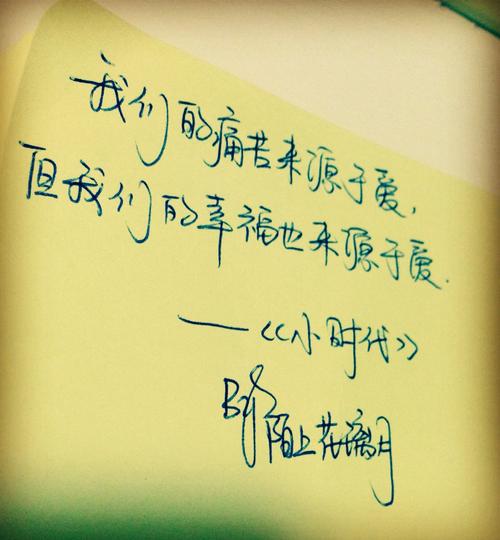 我们的痛苦来源于爱,
但我们的幸福也来源于爱.
——《小时代》
By 陌上花璃月